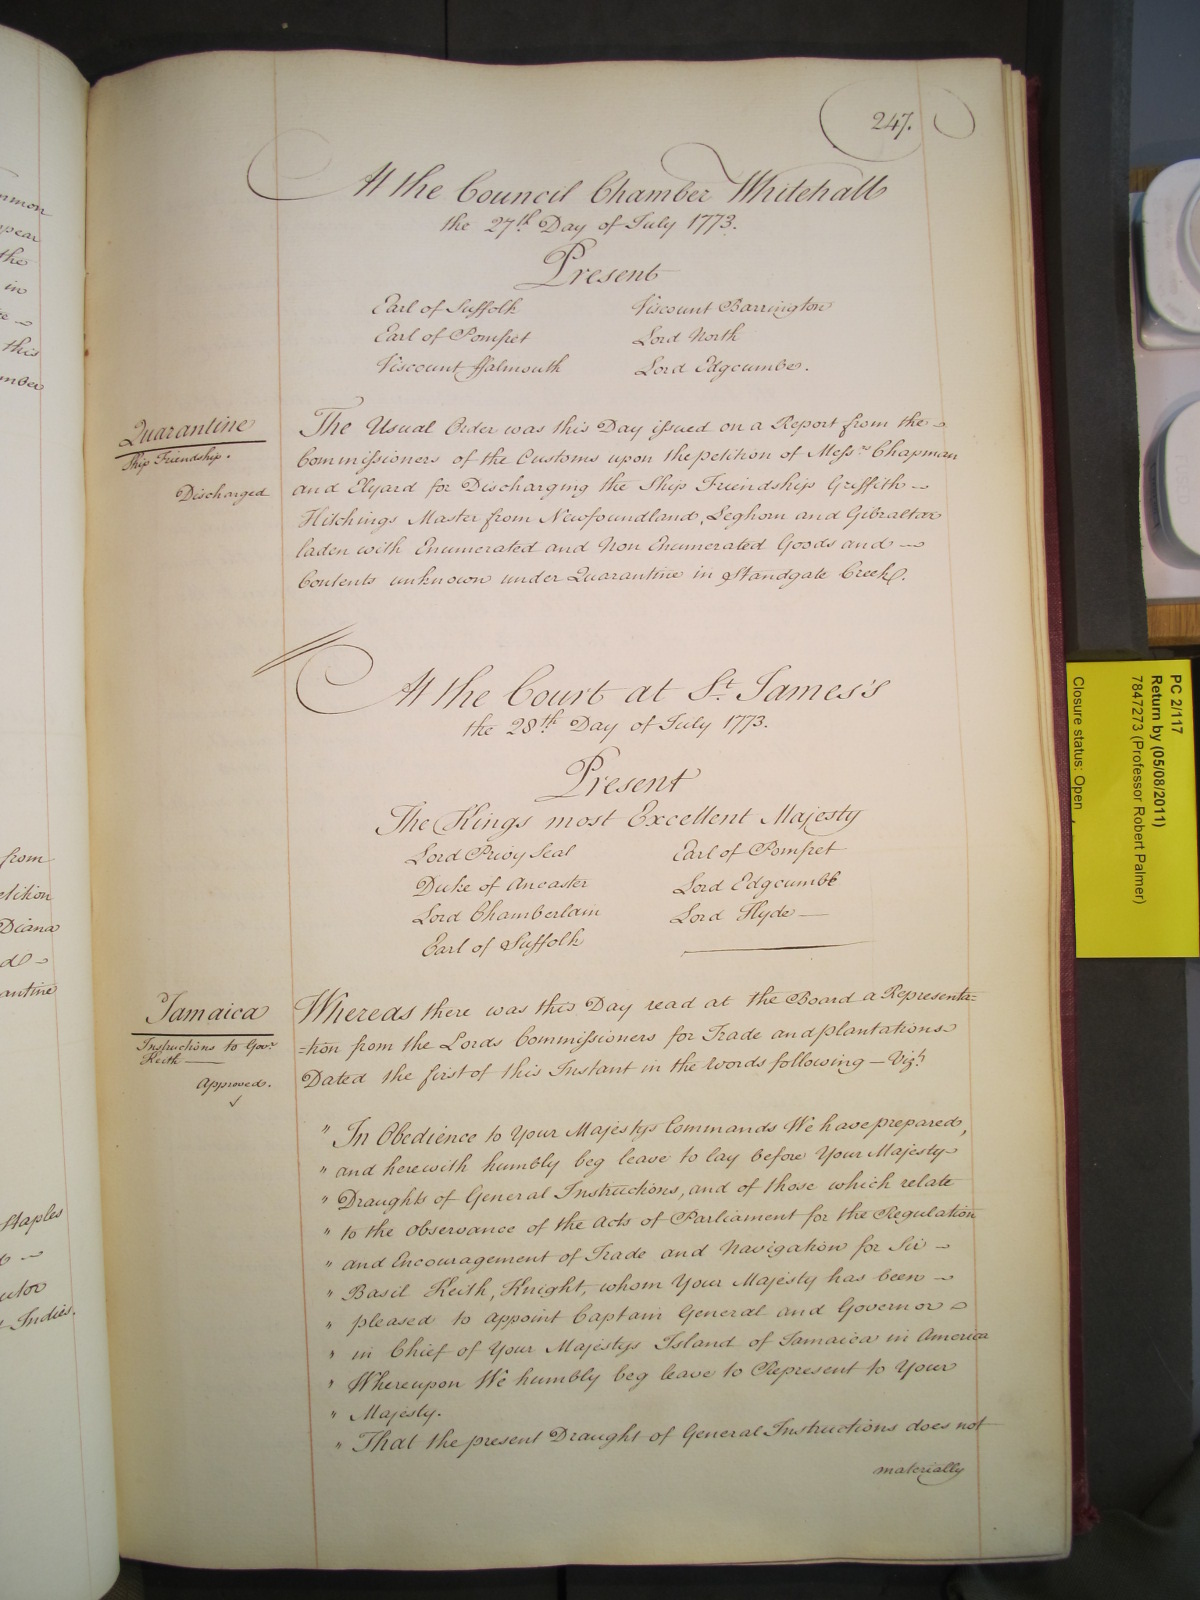 mmon
pear
the
in
this
mber
from
etition
Diana
antine
Staples
Indies.
247.
At the Council Chamber Whitehall
the 27th Day of July 1773.
Present
Earl of Suffolk
Viscount Barrington
Earl of Pomfret
Lord North
Viscount ffalmouth
Lord Edgcumbe.
Quarantine
Ship Friendship.
Discharged
The Usual Order was this Day issued on a Report from the
Commissioners of the Customs upon the petition of Messrs Chapman
and Elyard for Discharging the Ship Friendship Griffith
Hitchings Master from Newfoundland, Leghorn and Gibraltar
laden with Enumerated and Non Enumerated Goods and
Contents unknown under Quarantine in Standgate Creek.
At the Court at St. James's
the 28th Day of July 1773.
Present
The Kings most Excellent Majesty
Lord Privy Seal
Earl of Pomfret
Duke of Ancaster
Lord Edgcumbe
Lord Chamberlain
Lord Hyde —
Earl of Suffolk
Jamaica
Instructions to Govr.
Keith —
Approved.
Whereas there was this Day read at the Board a Representa=
=tion from the Lords Commissioners for Trade and plantations
Dated the first of this Instant in the words following — Vizt.
" In Obedience to Your Majestys Commands We have prepared,
" and herewith humbly beg leave to lay before Your Majesty
" Draughts of General Instructions, and of those which relate
" to the observance of the Acts of Parliament for the Regulation
" and Encouragement of Trade and Navigation for Sir
" Basil Keith, Knight, whom Your Majesty has been
" pleased to appoint Captain General and Governor
" in Chief of Your Majestys Island of Jamaica in America
" Whereupon We humbly beg leave to Represent to Your
" Majesty.
" That the present Draught of General Instructions does not
materially
PC 2/117
Return by (05/08/2011)
7847273 (Professor Robert Palmer)
Closure status: Open